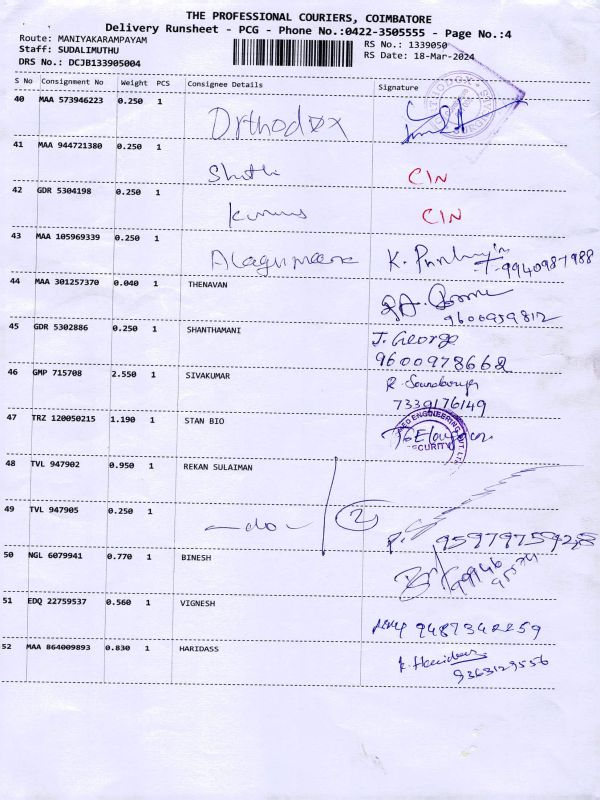 THE PROFESSIONAL COURIERS, COIMBATORE
Delivery Runsheet - PCG - Phone No.:0422-3505555 - Page No.:4
Route: MANIYAKARAMPAYAM
RS No.: 1339050
Staff: SUDALIMUTHU
RS Date: 18-Mar-2024
DRS No.: DCJB133905004
S No Consignment No Weight PCS Consignee Details Signature
40 MAA 573946223 0.250 1 Orthodox
41 MAA 944721380 0.250 1
CIN
42 GDR 5304198 0.250 1
CIN
43 MAA 105969339 0.250 1
9940987988
44 MAA 301257370 0.040 1 THENAVAN
9600959812
45 GDR 5302886 0.250 1 SHANTHAMANI J. George
9600978662
46 GMP 715708 2.550 1 SIVAKUMAR
7339176149
47 TRZ 120050215 1.190 1 STAN BIO
48 TVL 947902 0.950 1 REKAN SULAIMAN
49 TVL 947905 0.250 1 -do- 2
50 NGL 6079941 0.770 1 BINESH
51 EDQ 22759537 0.560 1 VIGNESH
52 MAA 864009893 0.830 1 HARIDASS K. Haridass
9363129556